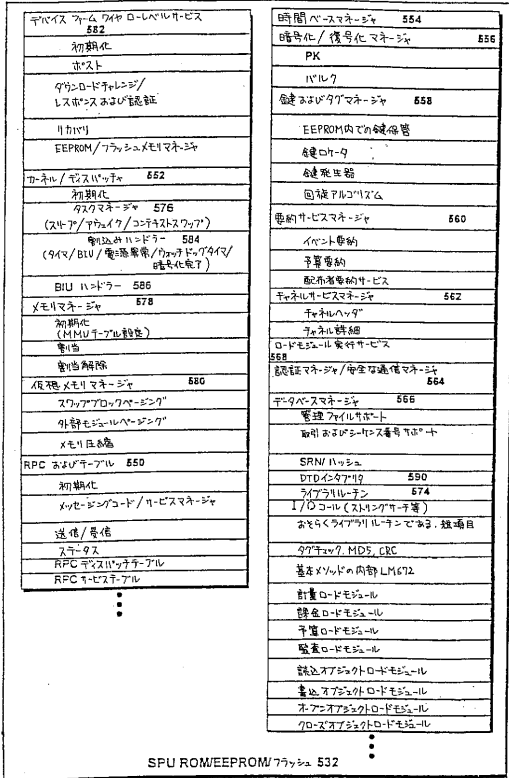 デバイス ファームワイヤ ローレベルサービス
582
初期化
ポスト
ダウンロードチャレンジ/
レスポンス および認証
リカバリ
EEPROM/フラッシュメモリマネージャ
カーネル/ディスパッチャ 552
初期化
タスクマネージャ 576
(スリープ/アウェイク/コンテキストスワップ)
割込みハンドラー 584
(タイマ/BIU/電源異常/ウォッチドッグタイマ/
暗号化完了)
BIU ハンドラー 586
メモリマネージャ 578
初期化
(MMUテーブル設定)
割当
割当解除
仮想メモリマネージャ 580
スワップブロックページング
外部モジュールページング
メモリ圧縮
RPC およびテーブル 550
初期化
メッセージングコード/サービスマネージャ
送信/受信
ステータス
RPC ディスパッチテーブル
RPC サービステーブル
時間ベースマネージャ 554
暗号化/復号化マネージャ 556
PK
バルク
鍵およびタグマネージャ 558
EEPROM内での鍵保管
鍵ロケータ
鍵発生器
回旋アルゴリズム
要約サービスマネージャ 560
イベント要約
予算要約
配布者要約サービス
チャネルサービスマネージャ 562
チャネルヘッダ
チャネル詳細
ロードモジュール実行サービス
568
認証マネージャ/安全な通信マネージャ
564
データベースマネージャ 566
管理ファイルサポート
取引およびシーケンス番号サポート
SRN/ハッシュ
DTDインタプリタ 590
ライブラリルーチン 574
I/Oコール(ストリングサーチ等)
おそらくライブラリルーチンである、種項目
タグチェック, MD5, CRC
基本メソッドの内部LM672
計量ロードモジュール
課金ロードモジュール
予算ロードモジュール
監査ロードモジュール
読込オブジェクトロードモジュール
書込オブジェクトロードモジュール
オープンオブジェクトロードモジュール
クローズオブジェクトロードモジュール
SPU ROM/EEPROM/フラッシュ 532